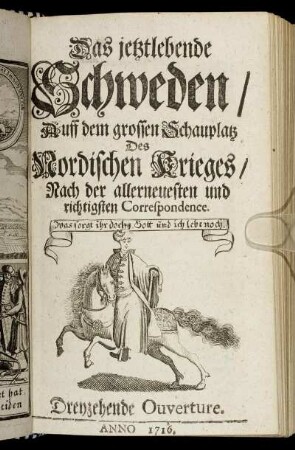 Das jetztlebende
Schweden/
Auff dem grossen Schauplatz
Des
Nordischen Krieges/
Nach der allerneuesten und
richtigsten Correspondence.
Was sorgt ihr doch? Gott und ich lebt noch.
Dreyzehende Ouverture.
ANNO 1716.
et hat
eiden